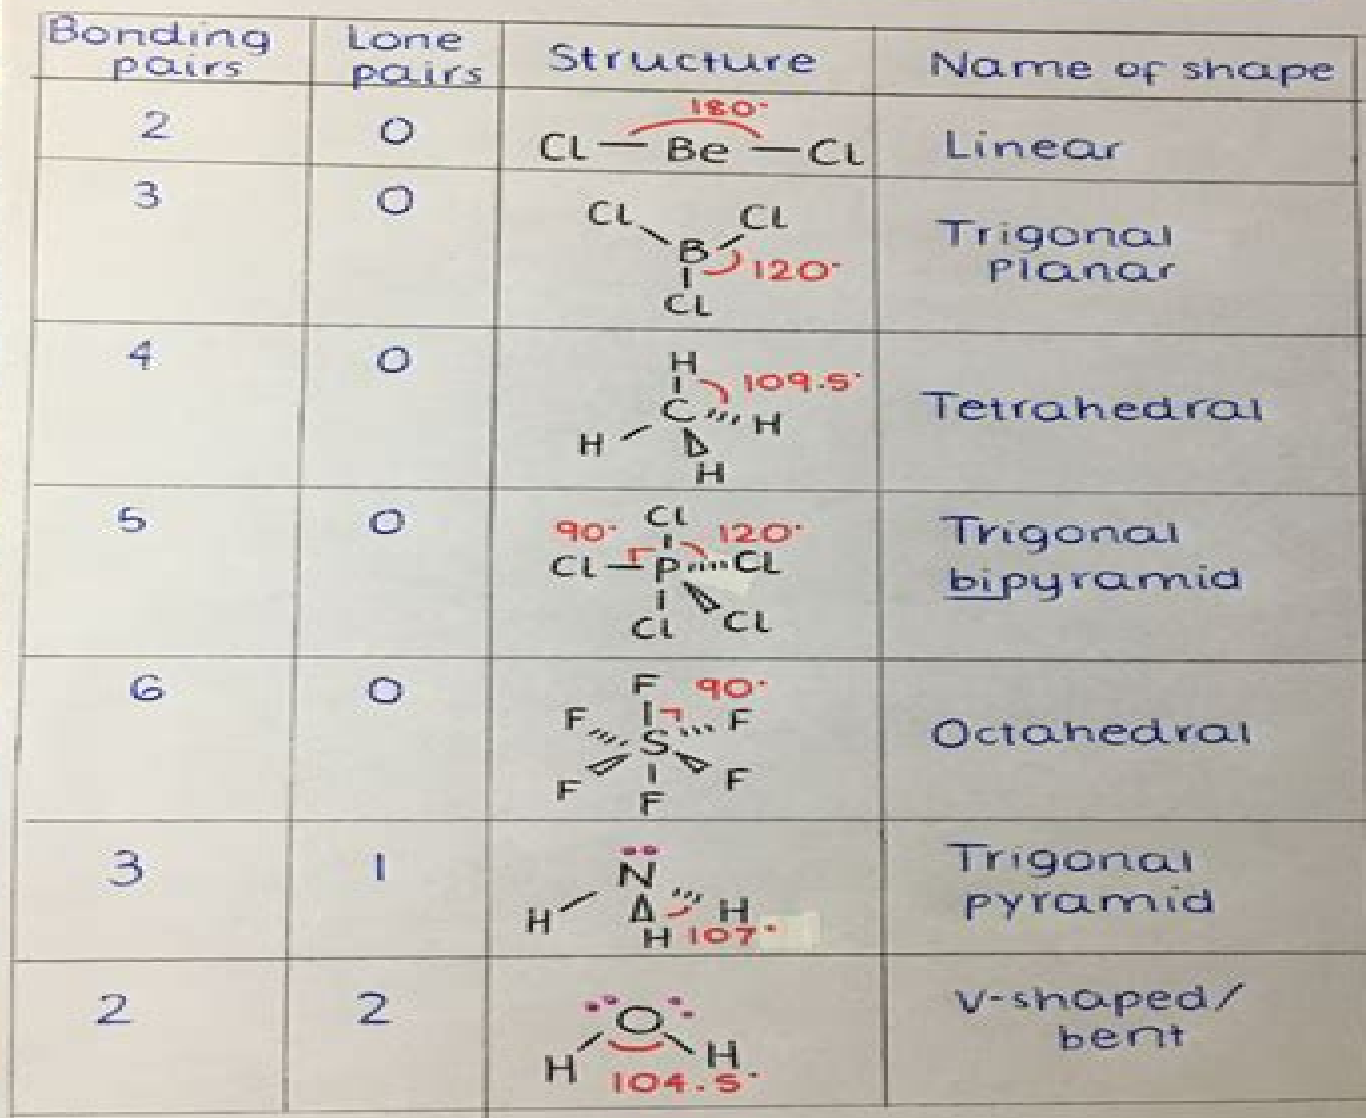 Bonding pairs Lone pairs Structure Name of shape
2 0 180° Cl Be Cl Linear
3 0 Cl Cl B 120° Cl Trigonal Planar
4 0 H 109.5° C H H H Tetrahedral
5 0 90° Cl 120° Cl P Cl Cl Cl Trigonal bipyramid
6 0 F 90° F F S F F F Octahedral
3 1 N H H H 107° Trigonal pyramid
2 2 O H H 104.5° V-shaped/ bent